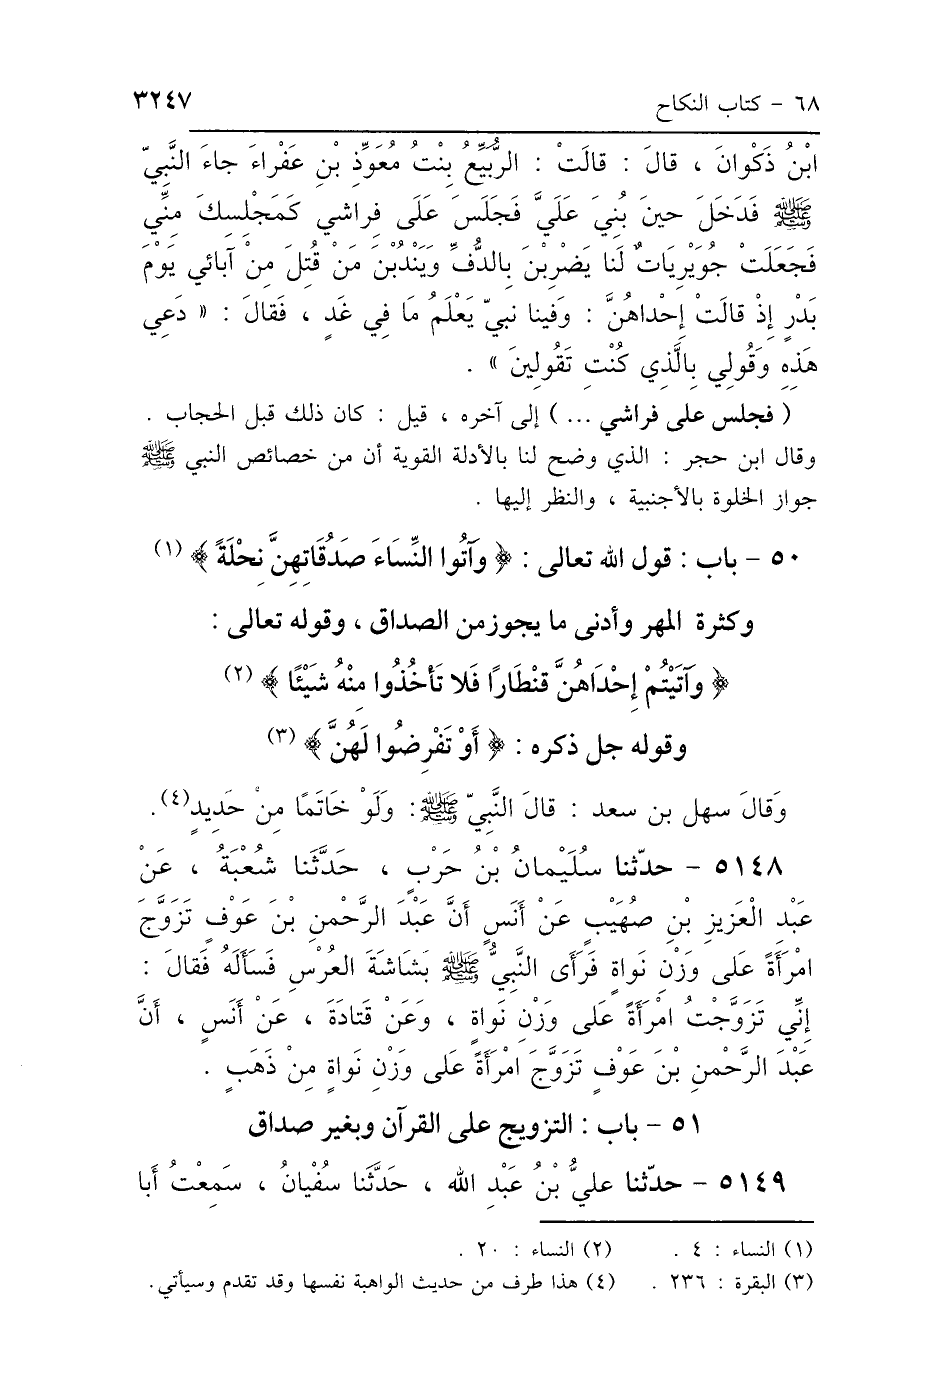 ٦٨ - كتاب النكاح ٣٢٤٧
ابْنُ ذَكْوانَ ، قالَ : قالَتْ : الرُّبَيِّعُ بِنْتُ مُعَوِّذِ بْنِ عَفْراءَ جاءَ النَّبيّ
ﷺ فَدَخَلَ حينَ بُنِيَ عَلَيَّ فَجَلَسَ عَلَى فِراشي كَمَجْلِسِكَ مِنِّي
فَجَعَلَتْ جُوَيْرِياتٌ لَنا يَضْرِبْنَ بِالدُّفِّ وَيَنْدُبْنَ مَنْ قُتِلَ مِنْ آبائي يَوْمَ
بَدْرٍ إِذْ قالَتْ إِحْداهُنَّ : وَفينا نبيّ يَعْلَمُ مَا فِي غَدٍ ، فَقالَ : « دَعِي
هَذِهِ وَقُولي بِالَّذي كُنْتِ تَقُولينَ » .
( فجلس على فراشي ... ) إلى آخره ، قيل : كان ذلك قبل الحجاب .
وقال ابن حجر : الذي وضح لنا بالأدلة القوية أن من خصائص النبي ﷺ
جواز الخلوة بالأجنبية ، والنظر إليها .
٥٠ - باب : قول الله تعالى : ﴿ وَآتُوا النِّسَاءَ صَدُقَاتِهِنَّ نِحْلَةً ﴾ (١)
وكثرة المهر وأدنى ما يجوزمن الصداق ، وقوله تعالى :
﴿ وَآتَيْتُمْ إِحْدَاهُنَّ قِنْطَارًا فَلا تَأْخُذُوا مِنْهُ شَيْئًا ﴾ (٢)
وقوله جل ذكره : ﴿ أَوْ تَفْرِضُوا لَهُنَّ ﴾ (٣)
وَقالَ سهل بن سعد : قالَ النَّبيّ ﷺ: وَلَوْ خَاتَمًا مِنْ حَديدٍ(٤).
٥١٤٨ - حدّثنا سُلَيْمانُ بْنُ حَرْبٍ ، حَدَّثَنا شُعْبَةُ ، عَنْ
عَبْدِ الْعَزيزِ بْنِ صُهَيْبٍ عَنْ أَنَسٍ أَنَّ عَبْدَ الرَّحْمنِ بْنَ عَوْفٍ تَزَوَّجَ
امْرَأَةً عَلى وَزْنِ نَواةٍ فَرَأى النَّبيُّ ﷺ بَشاشَةَ العُرْسِ فَسَأَلَهُ فَقالَ :
إِنِّي تَزَوَّجْتُ امْرَأَةً عَلى وَزْنِ نَواةٍ ، وَعَنْ قَتادَةَ ، عَنْ أَنَسٍ ، أَنَّ
عَبْدَ الرَّحْمنِ بْنَ عَوْفٍ تَزَوَّجَ امْرَأَةً عَلى وَزْنِ نَواةٍ مِنْ ذَهَبٍ .
٥١ - باب : التزويج على القرآن وبغير صداق
٥١٤٩ - حدّثنا عليُّ بْنُ عَبْدِ الله ، حَدَّثَنا سُفْيانُ ، سَمِعْتُ أَبا
(١) النساء : ٤ . (٢) النساء : ٢٠ .
(٣) البقرة : ٢٣٦ . (٤) هذا طرف من حديث الواهبة نفسها وقد تقدم وسيأتي.